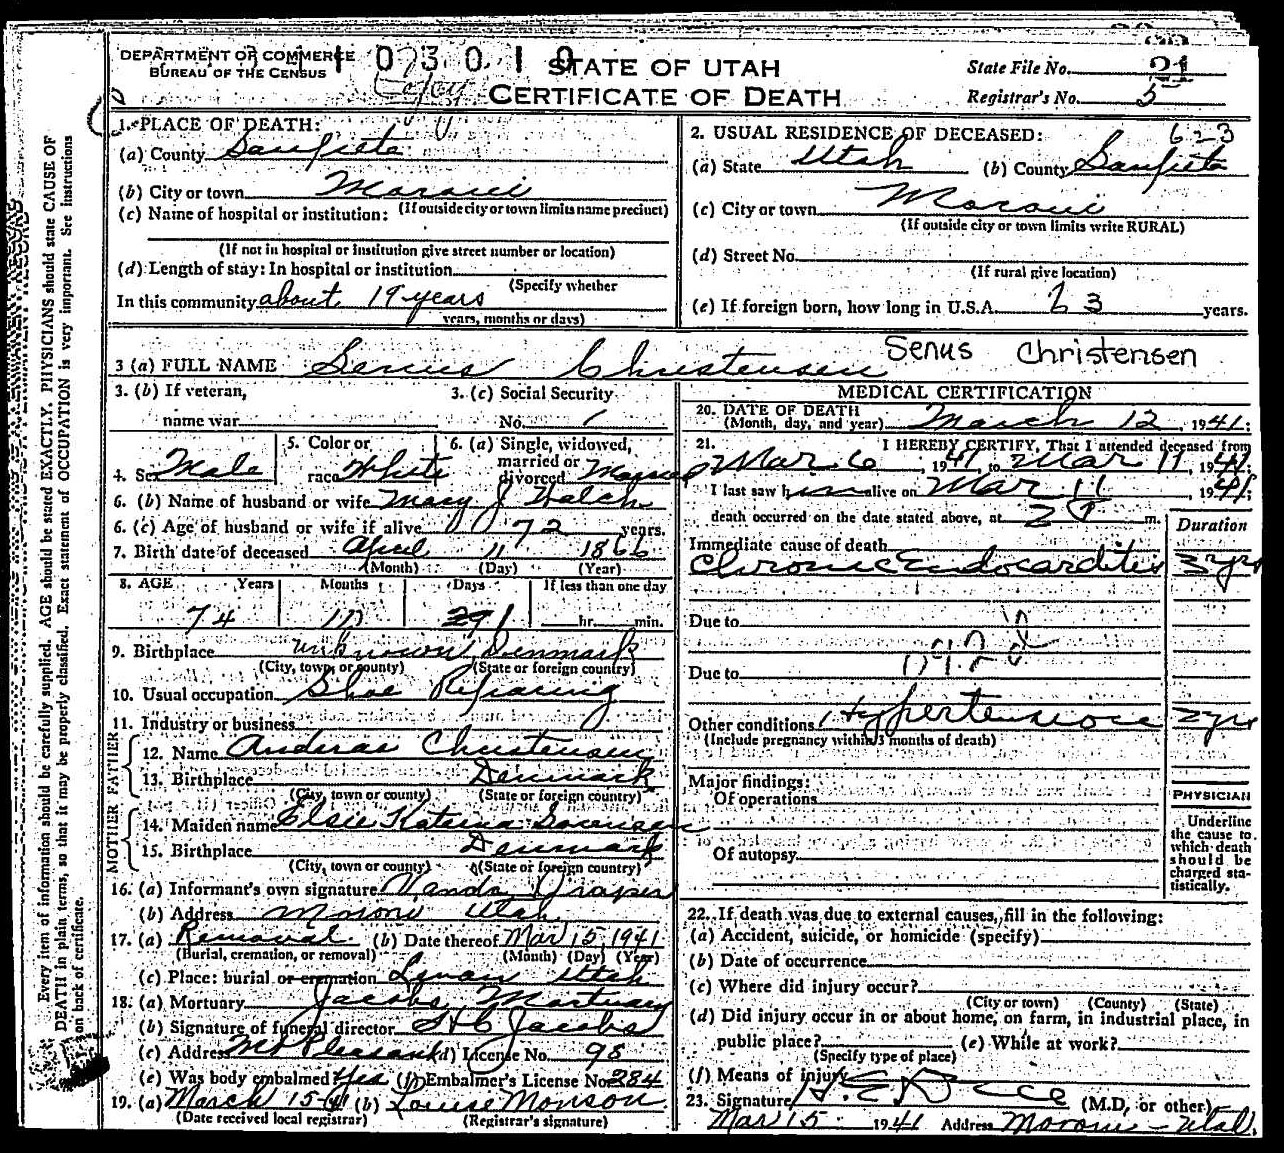 DEPARTMENT OF COMMERCE
BUREAU OF THE CENSUS
1 0 3 0 1 0
STATE OF UTAH
CERTIFICATE OF DEATH
State File No. 21
Registrar's No. 5
1. PLACE OF DEATH:
(a) County Sanpete
(b) City or town Moroni
(If outside city or town limits name precinct)
(c) Name of hospital or institution:
(If not in hospital or institution give street number or location)
(d) Length of stay: In hospital or institution
(Specify whether
In this community about 19 years
years, months or days)
2. USUAL RESIDENCE OF DECEASED: 6-3
(a) State Utah (b) County Sanpete
(c) City or town Moroni
(If outside city or town limits write RURAL)
(d) Street No.
(If rural give location)
(e) If foreign born, how long in U.S.A. 63 years.
3 (a) FULL NAME Senus Christensen Senus Christensen
3. (b) If veteran,
name war
3. (c) Social Security
No.
4. Sex Male
5. Color or
race White
6. (a) Single, widowed,
married or
divorced Married
6. (b) Name of husband or wife Mary J Walch
6. (c) Age of husband or wife if alive 72 years.
7. Birth date of deceased April 11 1866
(Month) (Day) (Year)
8. AGE Years Months Days If less than one day
74 hr. min.
9. Birthplace unknown Denmark
(City, town, or county) (State or foreign country)
10. Usual occupation Shoe Repairing
11. Industry or business
FATHER
12. Name Andreas Christensen
13. Birthplace Denmark
(City, town or county) (State or foreign country)
MOTHER
14. Maiden name Elsie Katrina Sorensen
15. Birthplace Denmark
(City, town or county) (State or foreign country)
16. (a) Informant's own signature Vanda Draper
(b) Address Moroni Utah
17. (a) Removal (b) Date thereof Mar 15 1941
(Burial, cremation, or removal) (Month) (Day) (Year)
(c) Place: burial or cremation Lyman Utah
18. (a) Mortuary Jacobs Mortuary
(b) Signature of funeral director Jacobs
(c) Address Mt Pleasant (d) License No. 98
(e) Was body embalmed? Yes (f) Embalmer's License No. 284
19. (a) March 15-41 (b) Louise Monson
(Date received local registrar) (Registrar's signature)
MEDICAL CERTIFICATION
20. DATE OF DEATH
(Month, day, and year) March 12, 1941;
21. I HEREBY CERTIFY, That I attended deceased from
Mar 6, 1941 to Mar 11 1941;
I last saw him alive on Mar 11, 1941;
death occurred on the date stated above, at 2 m.
Duration
Immediate cause of death
Chronic Endocarditis 3 yrs
Due to
Due to
Other conditions Hypertension 2 yrs
(Include pregnancy within 3 months of death)
Major findings:
Of operations
Of autopsy
PHYSICIAN
Underline
the cause to
which death
should be
charged sta-
tistically.
22. If death was due to external causes, fill in the following:
(a) Accident, suicide, or homicide (specify)
(b) Date of occurrence
(c) Where did injury occur?
(City or town) (County) (State)
(d) Did injury occur in or about home, on farm, in industrial place, in
public place? (e) While at work?
(Specify type of place)
(f) Means of injury
23. Signature (M.D, or other)
Mar 15 1941 Address Moroni - Utah.
Every item of information should be carefully supplied. AGE should be stated EXACTLY. PHYSICIANS should state CAUSE OF
DEATH in plain terms, so that it may be properly classified. Exact statement of OCCUPATION is very important. See instructions
on back of certificate.